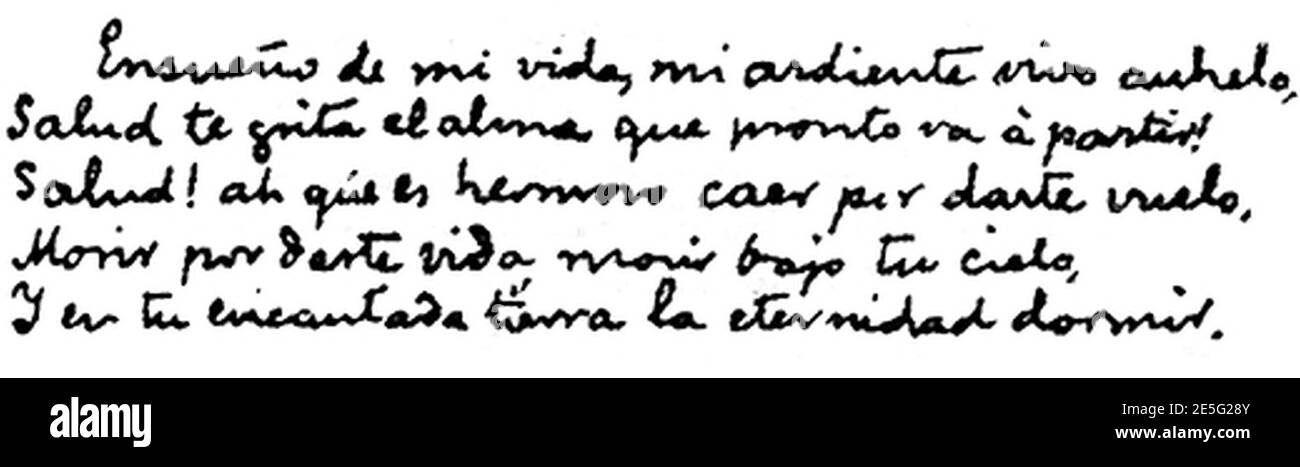 Ensueño de mi vida, mi ardiente vivo anhelo,
Salud te grita el alma que pronto va à partir!
Salud! ah que es hermoso caer por darte vuelo,
Morir por darte vida morir bajo tu cielo,
Y en tu encantada tierra la eternidad dormir.
alamy
Image ID: 2E5G28Y
www.alamy.com